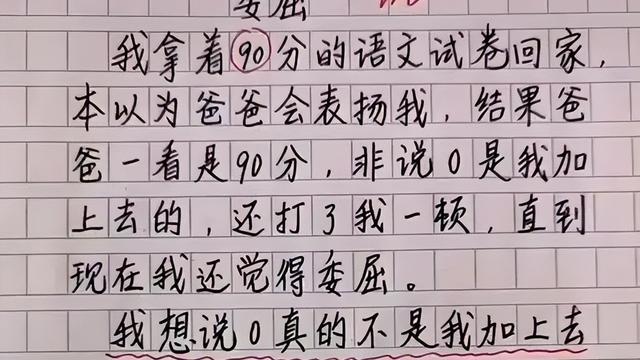 委屈
我拿着90分的语文试卷回家，
本以为爸爸会表扬我，结果爸
爸一看是90分，非说0是我加
上去的，还打了我一顿，直到
现在我还觉得委屈。
我想说0真的不是我加上去